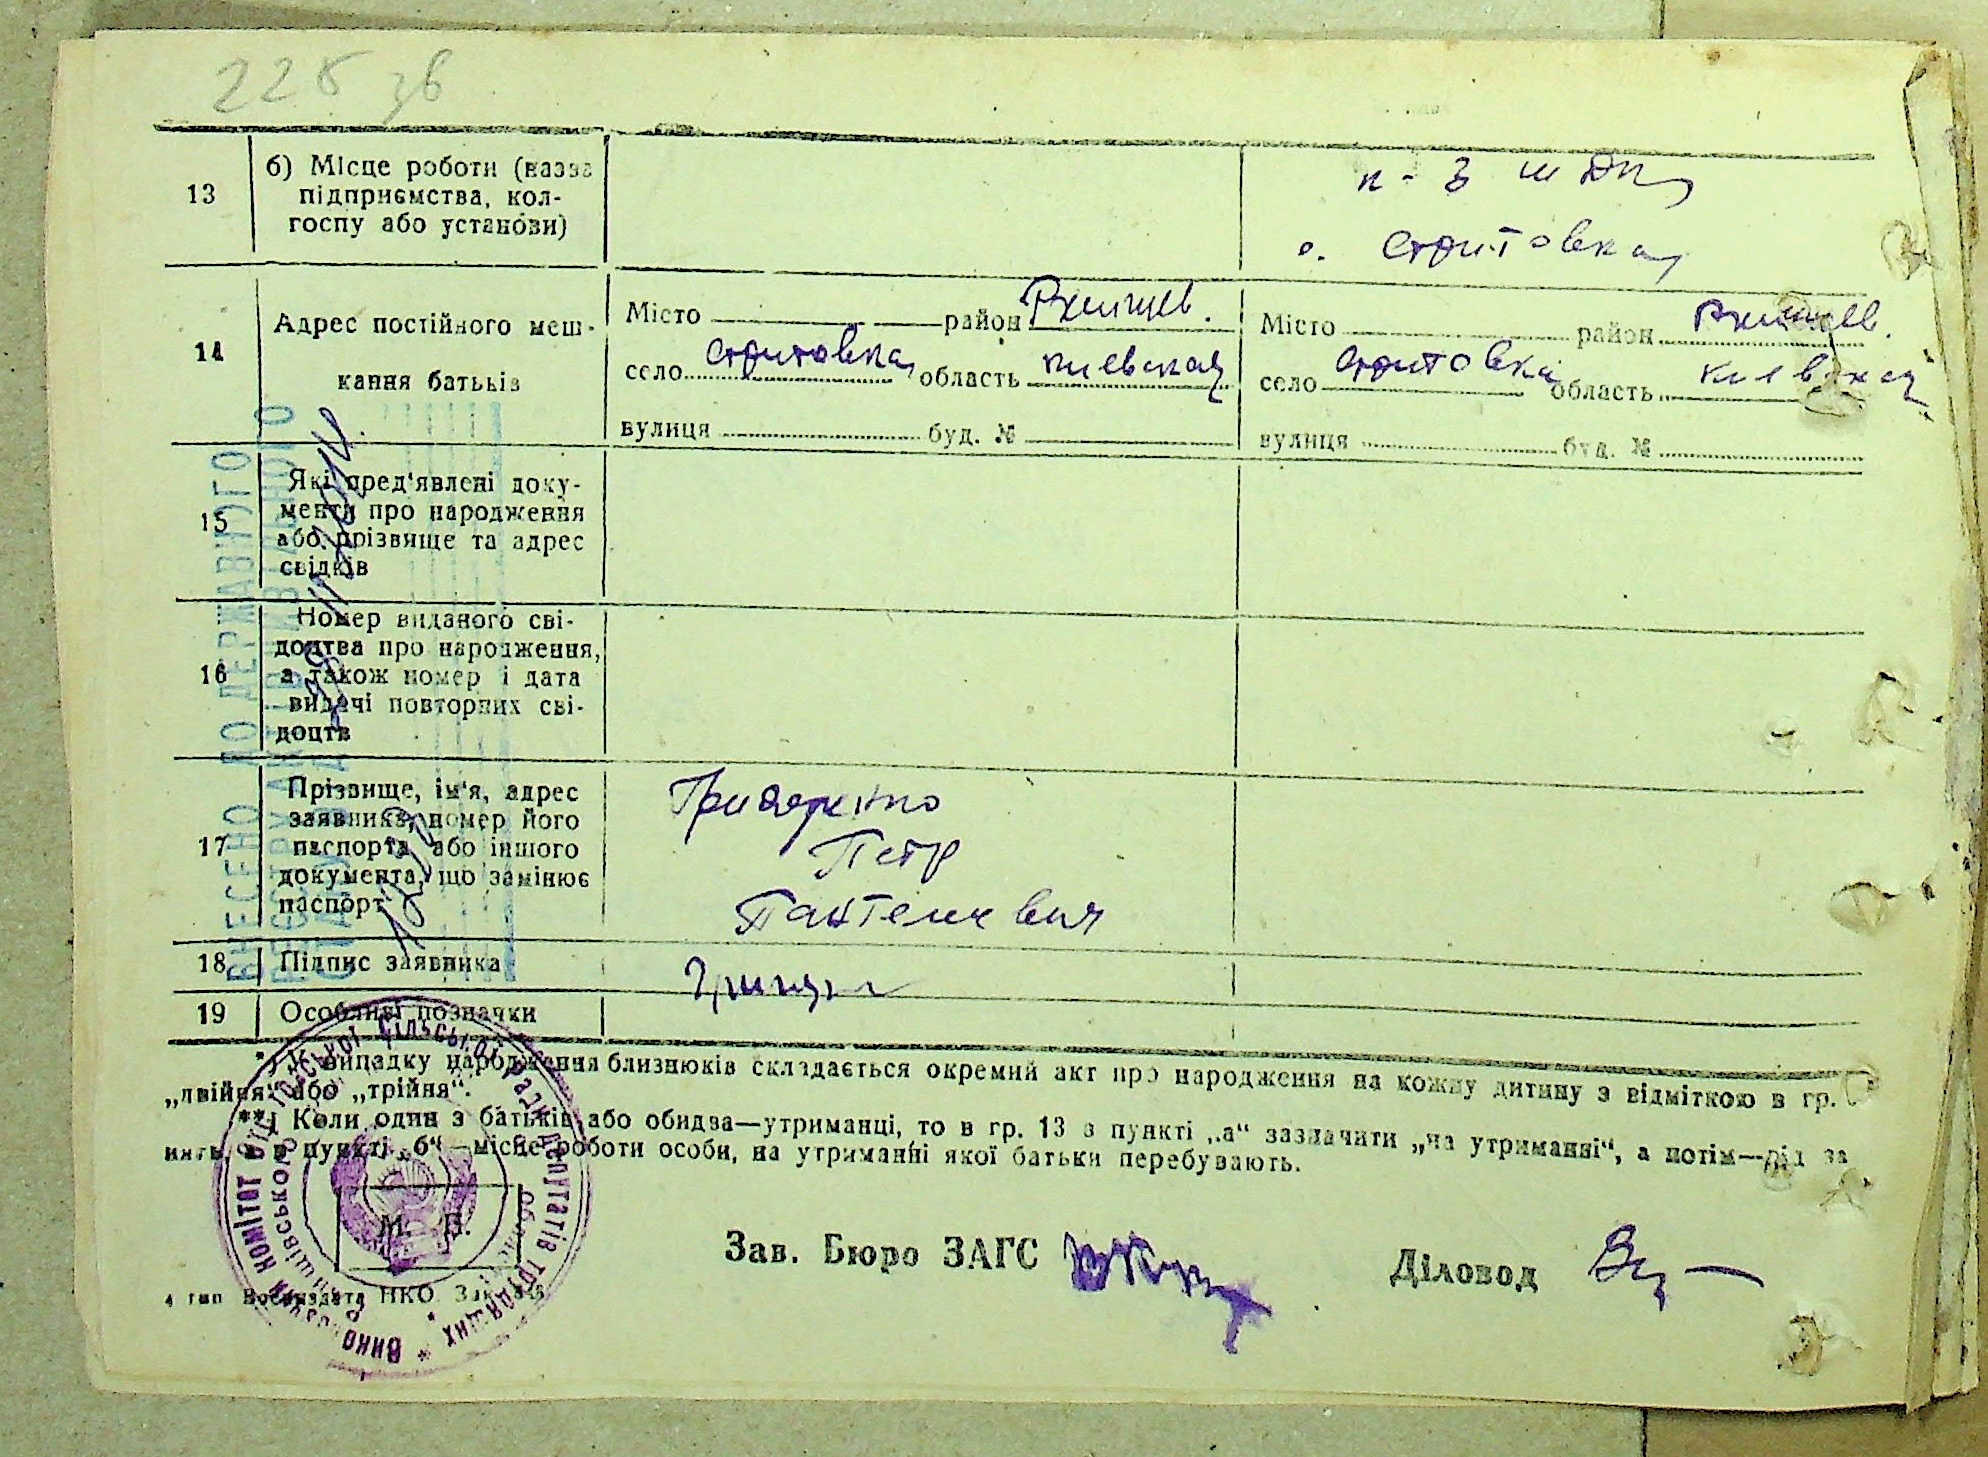 228 зв
13
б) Місце роботи (назва
підприємства, кол-
госпу або установи)
к-з
с. Стритовка
14
Адрес постійного меш-
кання батьків
Місто район Ржищев.
село Стритовка область Киевская
вулиця буд. №
Місто район Ржищев.
село Стритовка область Киевская
вулиця буд. №
15
Які пред'явлені доку-
менти про народження
або прізвище та адрес
свідків
16
Номер виданого сві-
доцтва про народження,
а також номер і дата
видачі повторних сві-
доцтв
17
Прізвище, ім'я, адрес
заявника, номер його
паспорта або іншого
документа, що замінює
паспорт
Петр
Пантелеевич
18
Підпис заявника
19
Особливі позначки
*) К випадку народження близнюків складається окремий акт про народження на кожну дитину з відміткою в гр.
„двійня" або „трійня".
**) Коли один з батьків або обидва—утриманці, то в гр. 13 в пункті „а" зазначити „на утриманні", а потім—рід за
в пункті „б"—місце роботи особи, на утриманні якої батьки перебувають.
М. П.
Зав. Бюро ЗАГС
Діловод
4 тип Воениздата НКО Зак.
ВНЕСЕНО ДО ДЕРЖАВНОГО
РЕЄСТРУ АКТІВ ЦИВІЛЬНОГО
СТАНУ
Виконавчий комітет Стритівської сільської ради депутатів трудящих
Ржищівського